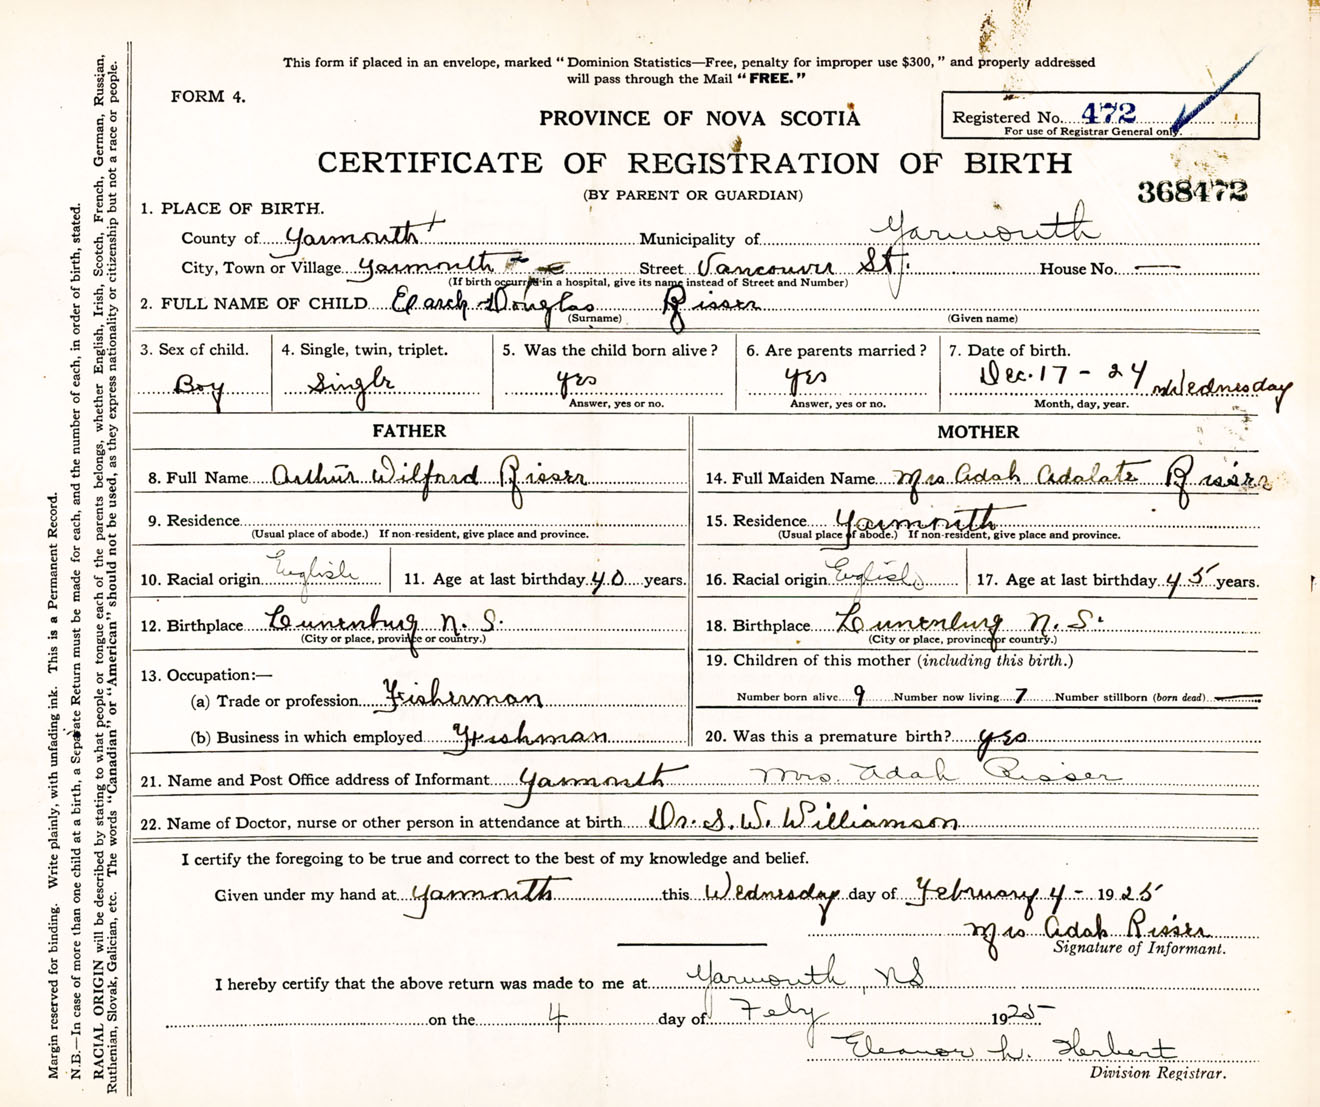 This form if placed in an envelope, marked "Dominion Statistics—Free, penalty for improper use $300," and properly addressed
will pass through the Mail "FREE."
FORM 4.
PROVINCE OF NOVA SCOTIA
Registered No. 472
For use of Registrar General only.
CERTIFICATE OF REGISTRATION OF BIRTH
(BY PARENT OR GUARDIAN)
368472
1. PLACE OF BIRTH.
County of Yarmouth Municipality of Yarmouth
City, Town or Village Yarmouth Street Vancouver St. House No. —
(If birth occurred in a hospital, give its name instead of Street and Number)
2. FULL NAME OF CHILD Douglas Risser
(Surname) (Given name)
3. Sex of child. 4. Single, twin, triplet. 5. Was the child born alive? 6. Are parents married? 7. Date of birth.
Boy Single yes yes Dec. 17 - 24 Wednesday
Answer, yes or no. Answer, yes or no. Month, day, year.
FATHER MOTHER
8. Full Name Arthur Wilford Risser 14. Full Maiden Name Mrs Adah Risser
9. Residence 15. Residence Yarmouth
(Usual place of abode.) If non-resident, give place and province. (Usual place of abode.) If non-resident, give place and province.
10. Racial origin English 11. Age at last birthday 40 years. 16. Racial origin English 17. Age at last birthday 45 years.
12. Birthplace Lunenburg N. S. 18. Birthplace Lunenburg N. S.
(City or place, province or country.) (City or place, province or country.)
13. Occupation:— 19. Children of this mother (including this birth.)
(a) Trade or profession Fisherman Number born alive 9 Number now living 7 Number stillborn (born dead) —
(b) Business in which employed Fishman 20. Was this a premature birth? yes
21. Name and Post Office address of Informant Yarmouth Mrs. Adah Risser
22. Name of Doctor, nurse or other person in attendance at birth Dr. S. W. Williamson
I certify the foregoing to be true and correct to the best of my knowledge and belief.
Given under my hand at Yarmouth this Wednesday day of February 4 - 1925
Mrs Adah Risser
Signature of Informant.
I hereby certify that the above return was made to me at Yarmouth, NS
on the 4 day of Feby 1925
Eleanor L. Herbert
Division Registrar.
Margin reserved for binding. Write plainly, with unfading ink. This is a Permanent Record.
N.B.—In case of more than one child at a birth, a Separate Return must be made for each, and the number of each, in order of birth, stated.
RACIAL ORIGIN will be described by stating to what people or tongue each of the parents belongs, whether English, Irish, Scotch, French, German, Russian,
Ruthenian, Slovak, Galician, etc. The words "Canadian" or "American" should not be used, as they express nationality or citizenship but not a race or people.